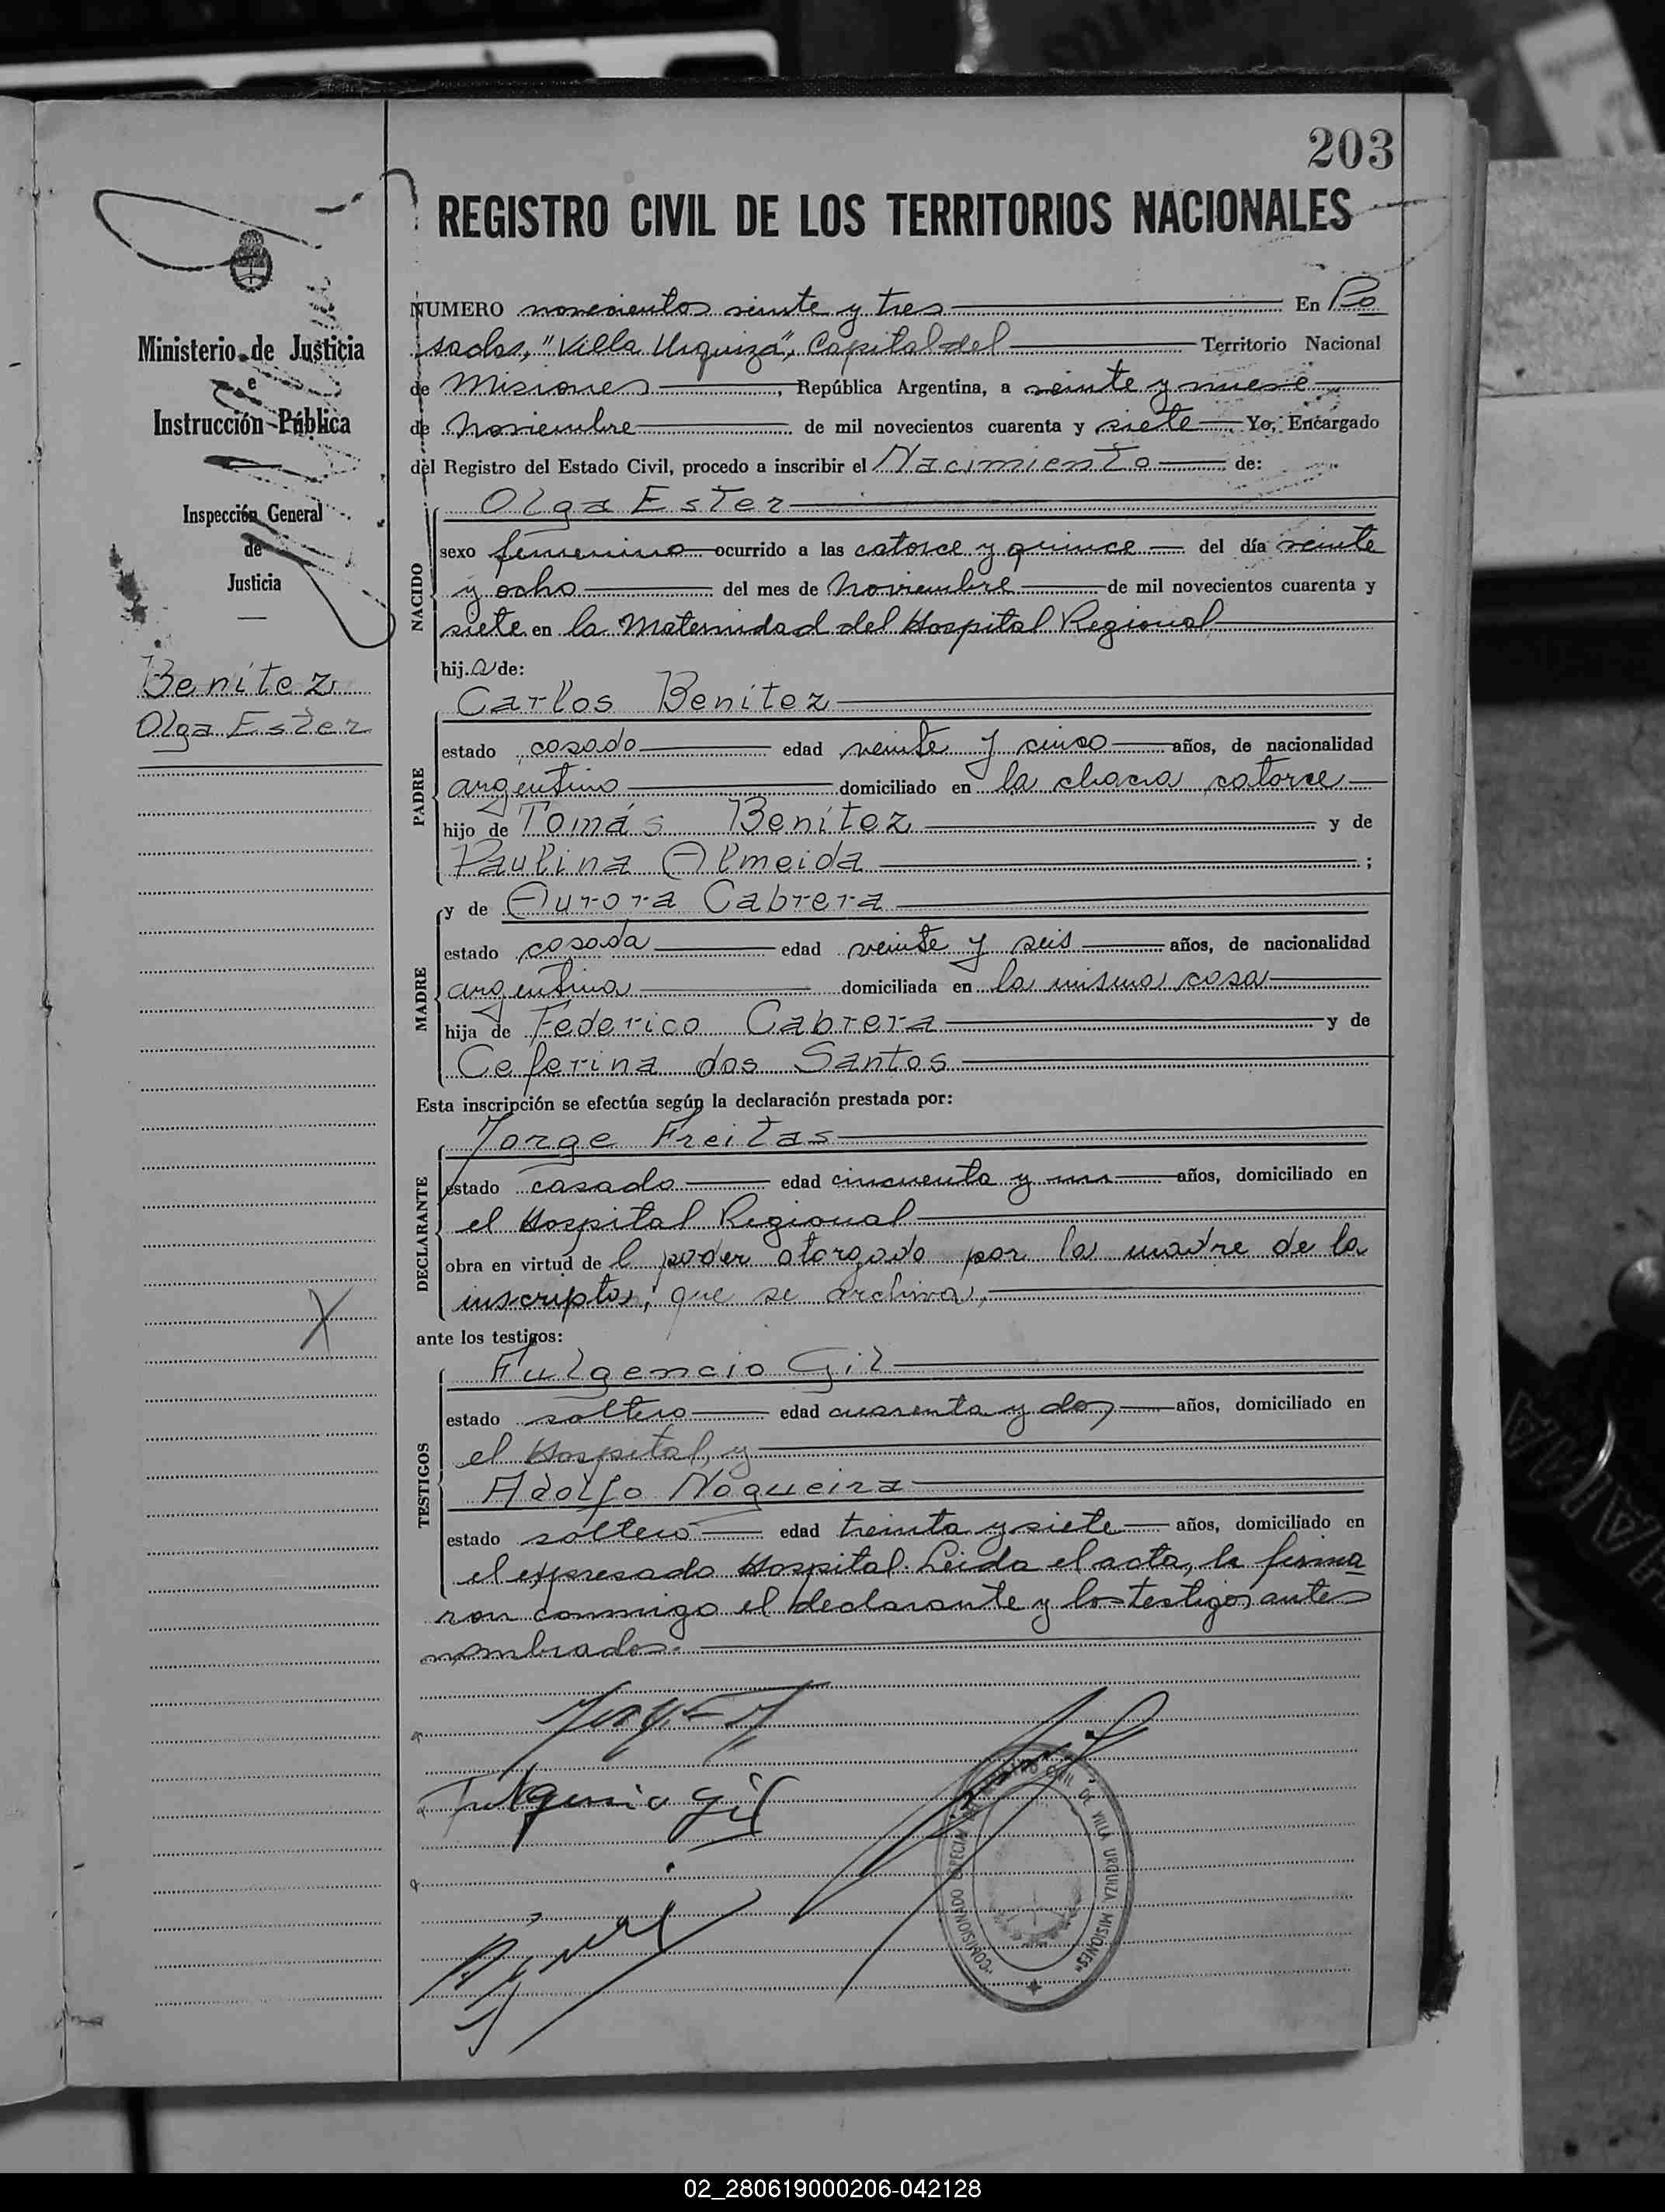 203
REGISTRO CIVIL DE LOS TERRITORIOS NACIONALES
Ministerio de Justicia
e
Instrucción Pública
Inspección General
de
Justicia
Benítez
Olga Ester
NUMERO novecientos veinte y tres En Po
sadas, "Villa Urquiza", Capital del Territorio Nacional
de Misiones, República Argentina, a veinte y nueve
de Noviembre de mil novecientos cuarenta y siete. Yo, Encargado
del Registro del Estado Civil, procedo a inscribir el Nacimiento de:
NACIDO
Olga Ester
sexo femenino ocurrido a las catorce y quince del día veinte
y ocho del mes de Noviembre de mil novecientos cuarenta y
siete en la Maternidad del Hospital Regional
hija de:
PADRE
Carlos Benítez
estado casado edad veinte y cinco años, de nacionalidad
argentino domiciliado en la chacra catorce
hijo de Tomás Benítez y de
Paulina Almeida ;
MADRE
y de Aurora Cabrera
estado casada edad veinte y seis años, de nacionalidad
argentina domiciliada en la misma casa
hija de Federico Cabrera y de
Ceferina dos Santos
Esta inscripción se efectúa según la declaración prestada por:
DECLARANTE
Jorge Freitas
estado casado edad cincuenta y un años, domiciliado en
el Hospital Regional
obra en virtud de l poder otorgado por la madre de la
inscripta, que se archiva,
ante los testigos:
TESTIGOS
Fulgencio Gil
estado soltero edad cuarenta y dos años, domiciliado en
el Hospital, y
Adolfo Nogueira
estado soltero edad treinta y siete años, domiciliado en
el expresado Hospital. Leída el acta, la firma
ron conmigo el declarante y los testigos antes
nombrados.
Fulgencio Gil
"COMISIONADO ESPECIAL DEL REGISTRO CIVIL DE VILLA URQUIZA MISIONES"
02_280619000206-042128